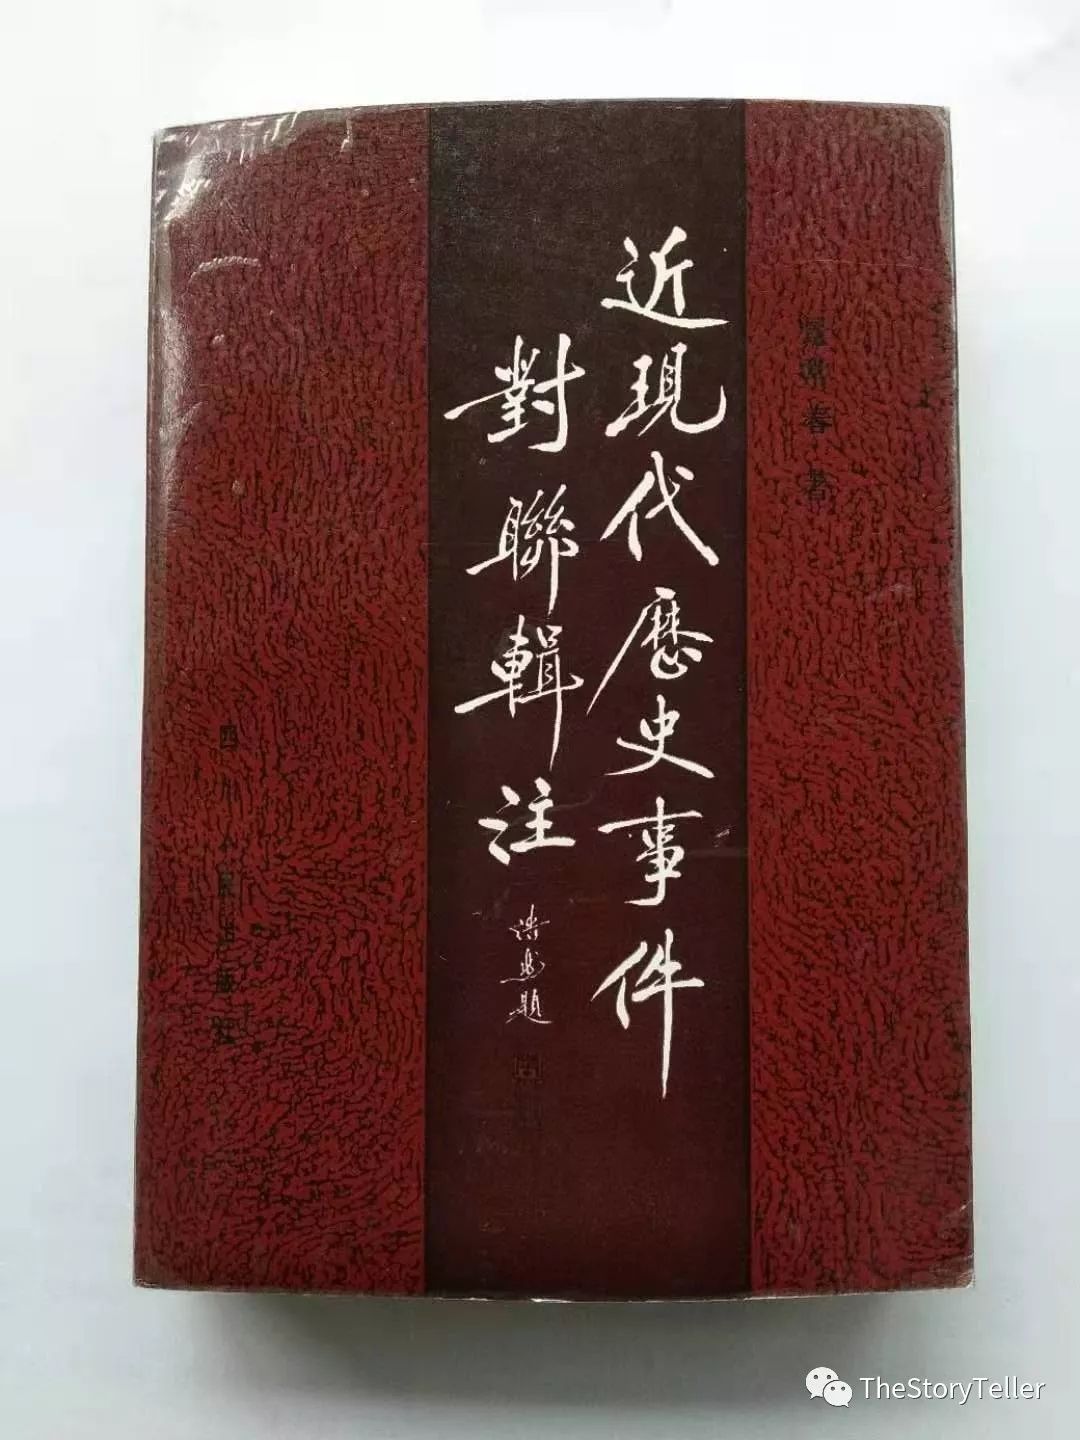 近現代歷史事件
對聯輯注
題
春著
四川人民出版社
TheStoryTeller